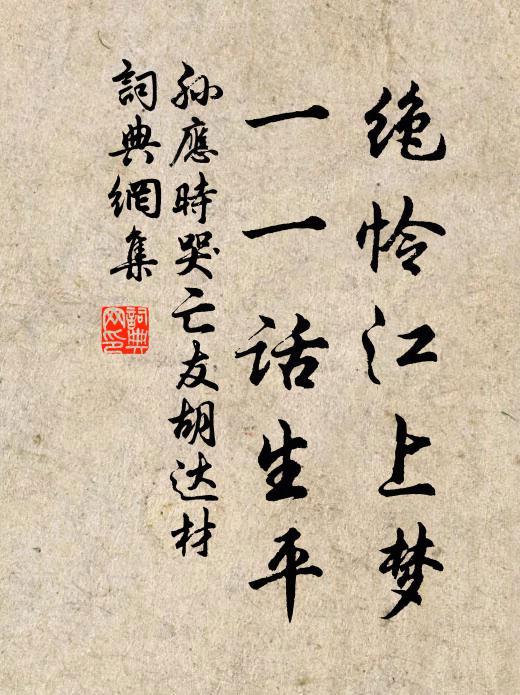 绝怜江上梦
一一话生平
孙應時哭亡友胡达材
詞典網集
詞典
网印